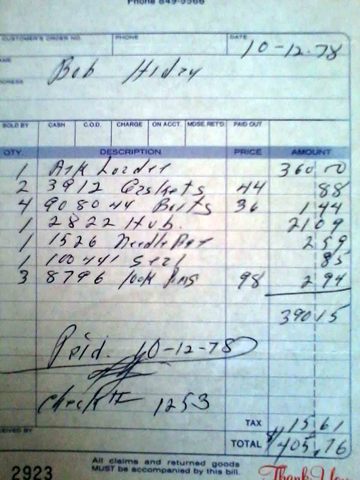 Phone 849-9566
CUSTOMER'S ORDER NO. PHONE DATE 10-12-78
NAME Bob
ADDRESS
SOLD BY CASH C.O.D. CHARGE ON ACCT. MDSE. RET'D PAID OUT
QTY. DESCRIPTION PRICE AMOUNT
1 Ark Loader 360 00
2 3912 Gaskets 44 88
4 908044 Bolts 36 1 44
1 2822 Hub 21 09
1 1526 Needle 2 59
1 100441 Seal 85
3 8796 Lock Rings 98 2 94
390 15
Paid. 10-12-78
Check # 1253
TAX 15.61
RECEIVED BY TOTAL $405.76
2923 All claims and returned goods
MUST be accompanied by this bill. Thank You